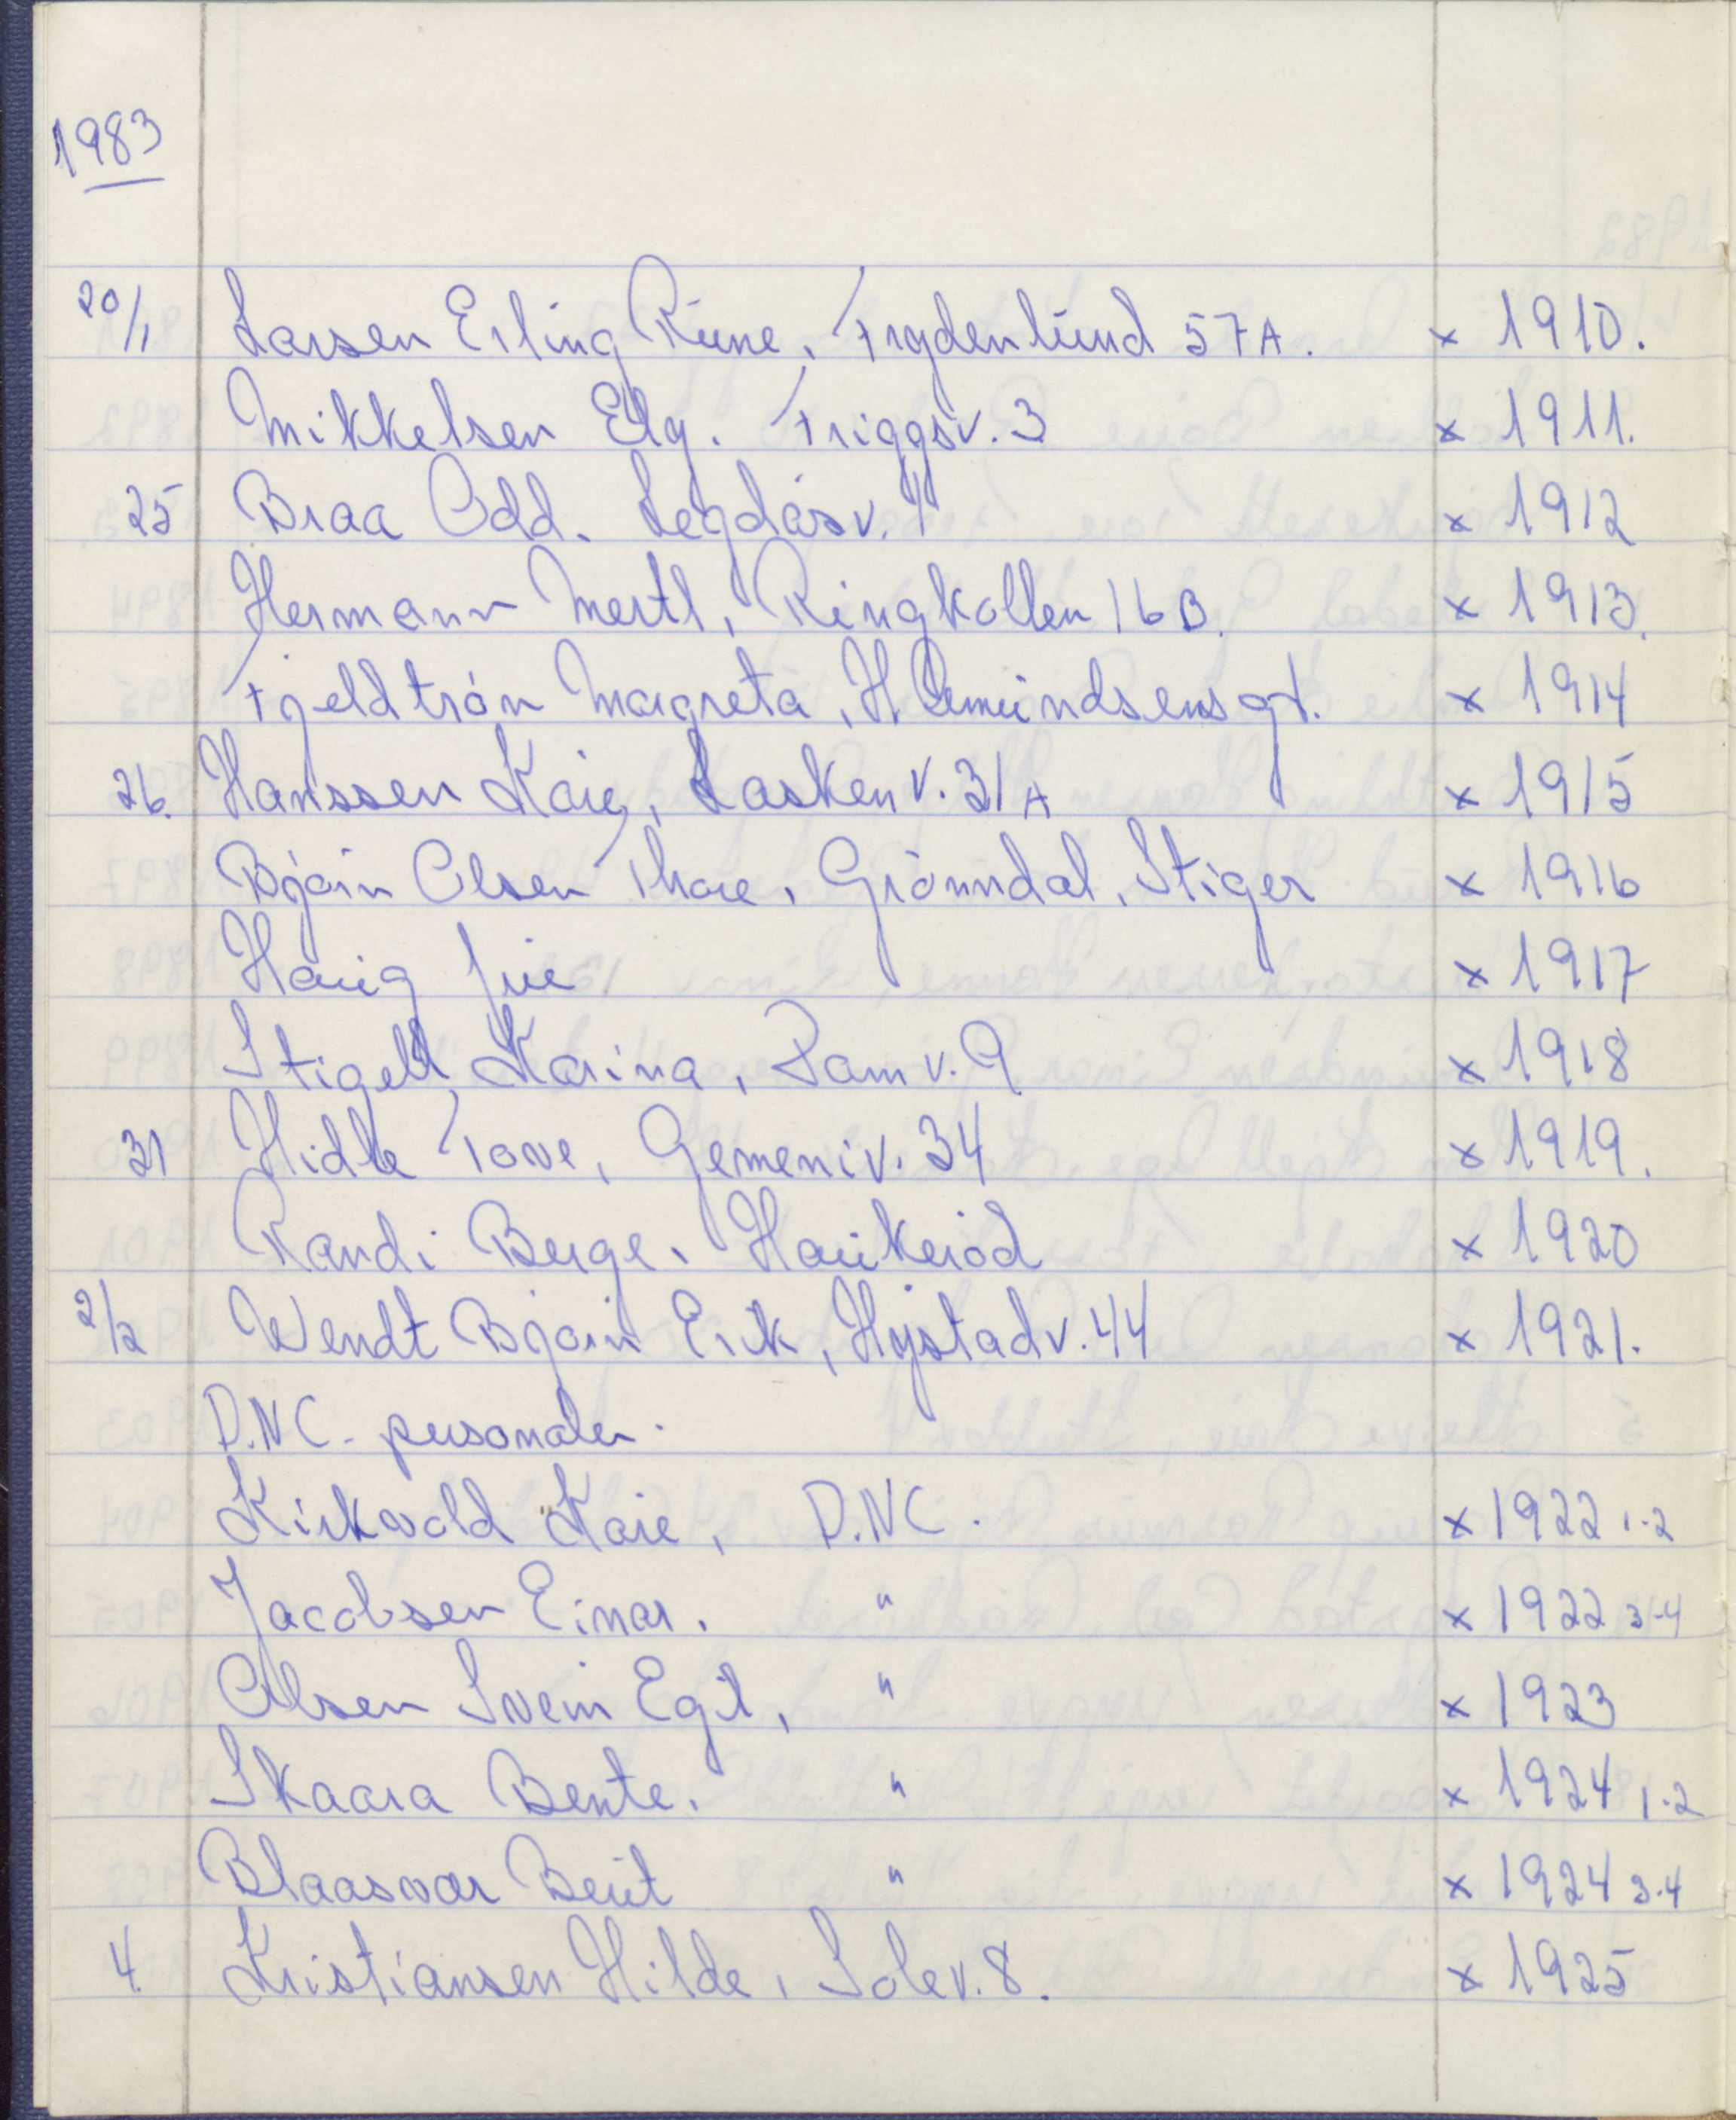 1983
20/1 Larsen Erling Rune, Frydenlund 57A. x 1910.
Mikkelsen Elg. Friggsv. 3 x 1911.
25 Braa Odd. Legdåsv. 4 x 1912
Hermann Mertl, Ringkollen 16 B. x 1913.
Fjeldtrøn Margreta, H. Amundsensgt. x 1914
26. Hanssen Kare, Lasken v. 31A x 1915
Bjørn Olsen Thore, Grønndal, Stiger x 1916
Haug x 1917
Stigell Karina, Damv. 9 x 1918
31 Hidle Tove, Gemeniv. 34 x 1919.
Randi Berge, Haukerød x 1920
2/2 Wendt Bjørn Erik, Hystadv. 44 x 1921.
D.N.C. personalen.
Kirkvold Kåre, D.N.C. x 1922 1-2
Jacobsen Einar. " x 1922 3-4
Olsen Svein Egil, " x 1923
Skaara Bente. " x 1924 1-2
Blaasvær Berit " x 1924 3-4
4. Kristiansen Hilde, Solev. 8. x 1925